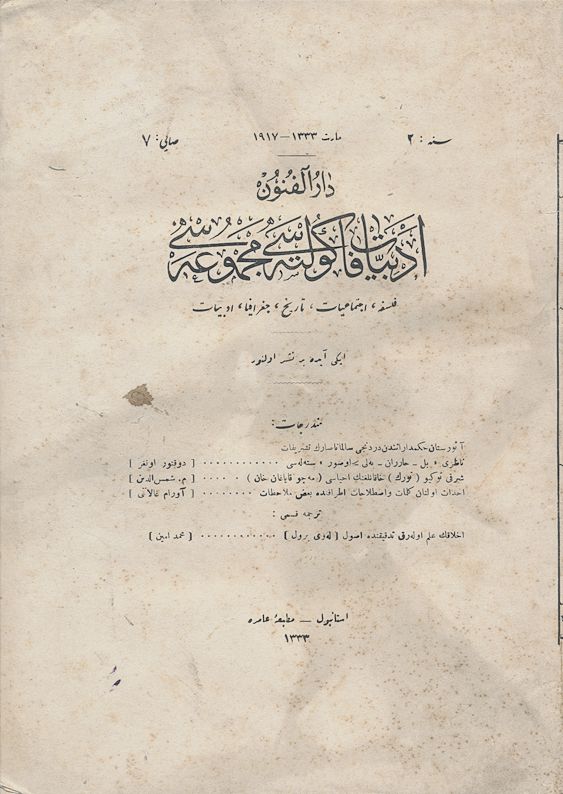 سنه : ۲
مارت ۱۳۳۳ — ۱۹۱۷
صايى : ۷
دار الفنون
ادبيات فاكولته سى مجموعه سى
فلسفه ، اجتماعيات ، تاريخ ، جغرافيا ، ادبيات
ايكى آيده بر نشر اولنور
مندرجات :
آثورستان حكمدارانندن دردنجى سالماناسارك تشريفات
ناظرى « بل - حارران - بلى اوصور » ستله سى ············ [ دوقتور اونغر ]
شرقى توكيو ( تورك ) خاقانلغنك احياسى ( مه چو قاپاغان خان ) ····· [ م. شمس الدين ]
احداث اولنان كلمات واصطلاحات اطرافنده بعض ملاحظات ········ [ آورام غالانتى ]
ترجمه قسمى :
اخلاقك علم اوله رق تدقيقنده اصول [ له وى برول ] ············ [ محمد امين ]
استانبول — مطبعهٔ عامره
۱۳۳۳